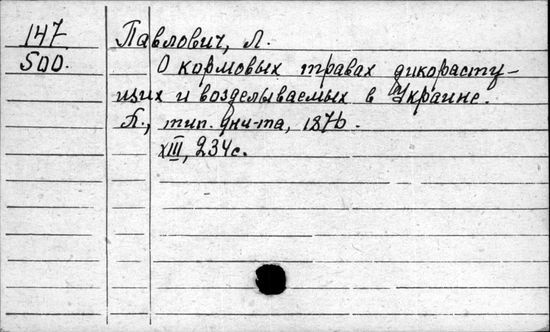 147
500.
Павлович, Л.
О кормовых травах дикорасту-
щих и возделываемых в Украине.
П., тип. Дни-та, 1876.
XIII, 234 с.